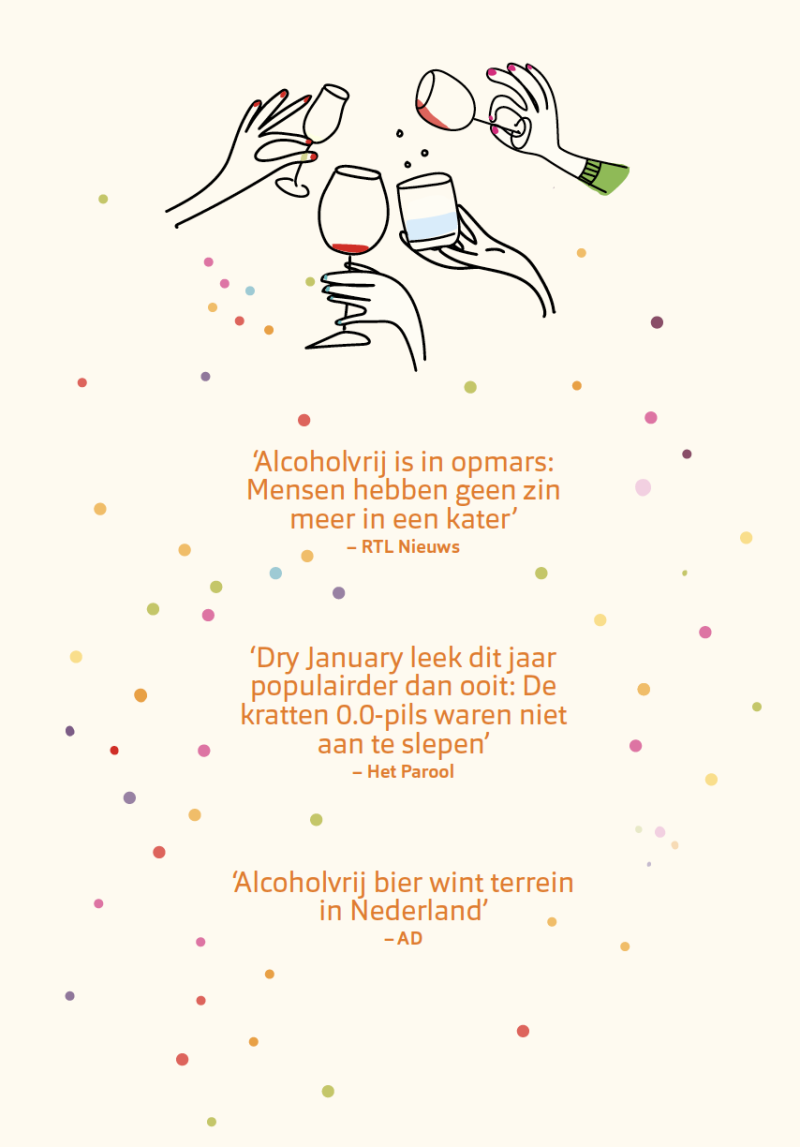 ‘Alcoholvrij is in opmars:
Mensen hebben geen zin
meer in een kater’
– RTL Nieuws
‘Dry January leek dit jaar
populairder dan ooit: De
kratten 0.0-pils waren niet
aan te slepen’
– Het Parool
‘Alcoholvrij bier wint terrein
in Nederland’
– AD